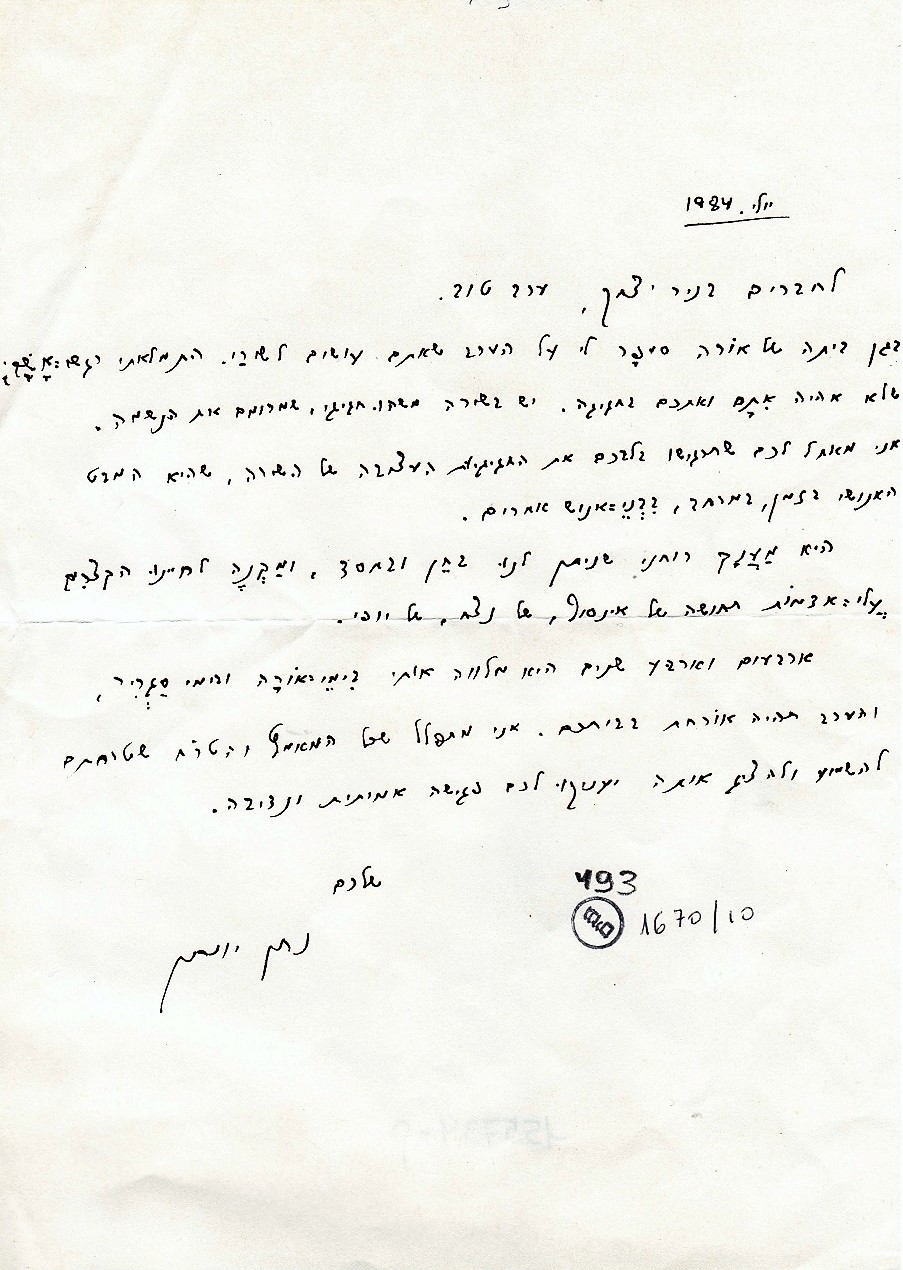 יולי. 1984
לחברים בניר יצחק, ערב טוב.
בגן ביתה של אוֹרה סֻפּר לי על הערב שאתם עושים לשירַי. התמלאתי רגשי=אָשָׁם
שלא אהיה אִתָם ואתכם בחגיגה. יש בשירה משהו חגיגי, שמרומם את הנשמה.
אני מאחל לכם שתרגישו בלבכם את החגיגיות העצובה של השירה, שהיא המבט
האנושי בזמן, במרחב, בִּבְנֵי=אנוש אחרים.
היא מַעֲנָק רוחני שניתן לנו בחֵן ובחסד, ומַקְנָה לחיינו הקצרים
עֲלֵי=אדמוֹת תחושה של אינסוף, של נצח, של יופי.
ארבעים וארבע שנים היא מלווה אותי בִּימֵי=אוֹרָה ובימי סַגְרִיר,
והערב תהיה אוֹרחת בביתכם. אני מתפלל שכל המאמץ והטורח שטרחתם
להשמיע ולהציג אותה יעניקו לכם פגישה אמיתית ונדיבה.
שלכם
נתן יונתן
493
1670/10